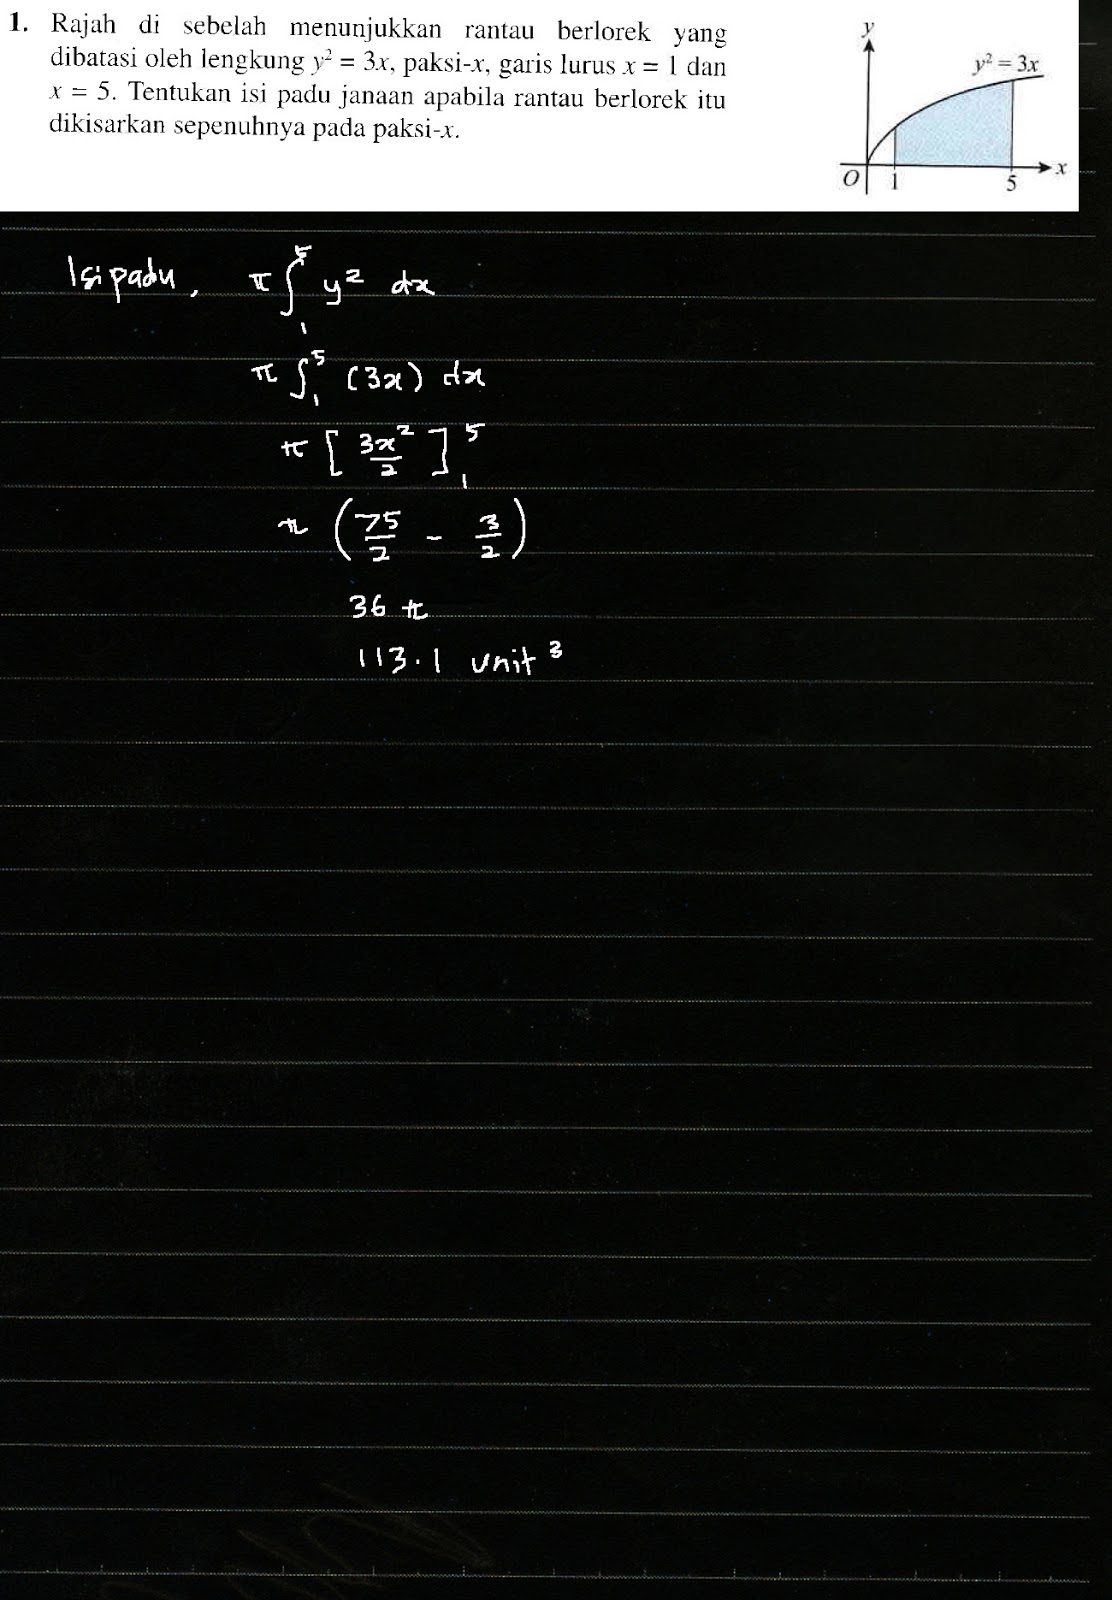 1. Rajah di sebelah menunjukkan rantau berlorek yang
dibatasi oleh lengkung y² = 3x, paksi-x, garis lurus x = 1 dan
x = 5. Tentukan isi padu janaan apabila rantau berlorek itu
dikisarkan sepenuhnya pada paksi-x.
y
y² = 3x
O 1 5 x
Isipadu, π∫₁⁵ y² dx
π∫₁⁵ (3x) dx
π [3x²/2]₁⁵
π (75/2 - 3/2)
36 π
113.1 unit³